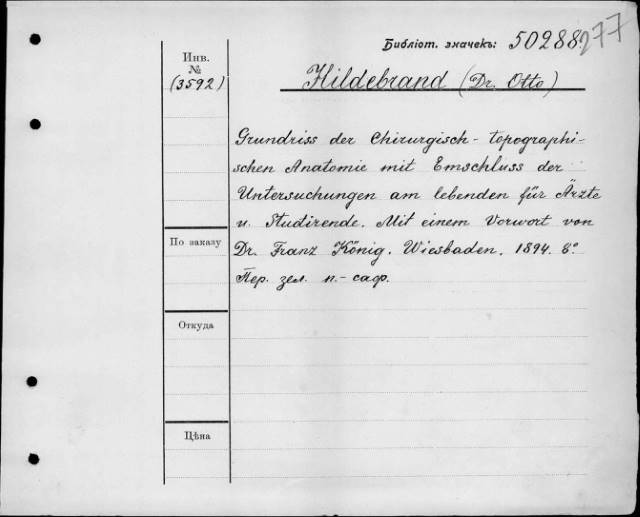 Библіот. значекъ: 50288.
277
Инв.
№
(3592)
Hildebrand (Dr. Otto)
Grundriss der Chirurgisch-topographi-
schen Anatomie mit Emschluss der
Untersuchungen am lebenden für Ärzte
u. Studirende. Mit einem Vorwort von
Dr. Franz König. Wiesbaden. 1894. 8°
Пер. зел. п.-саф.
По заказу
Откуда
Цѣна